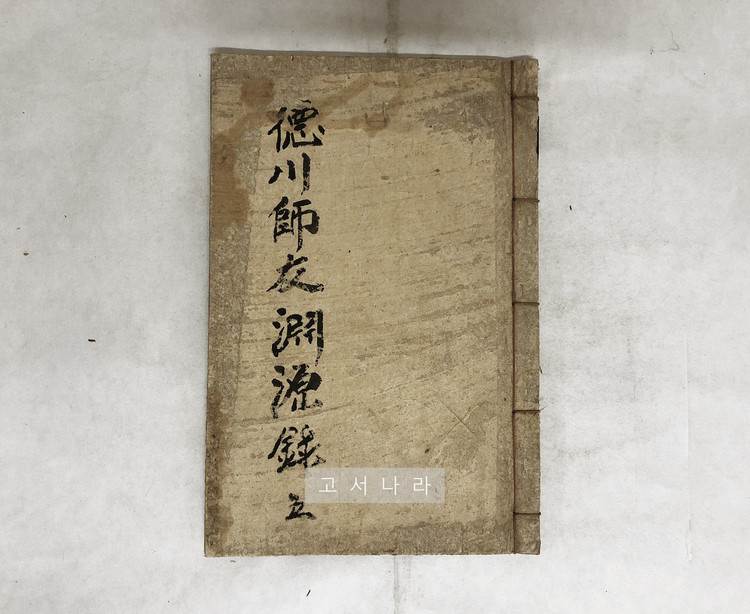 德川師友淵源錄 五
고서나라